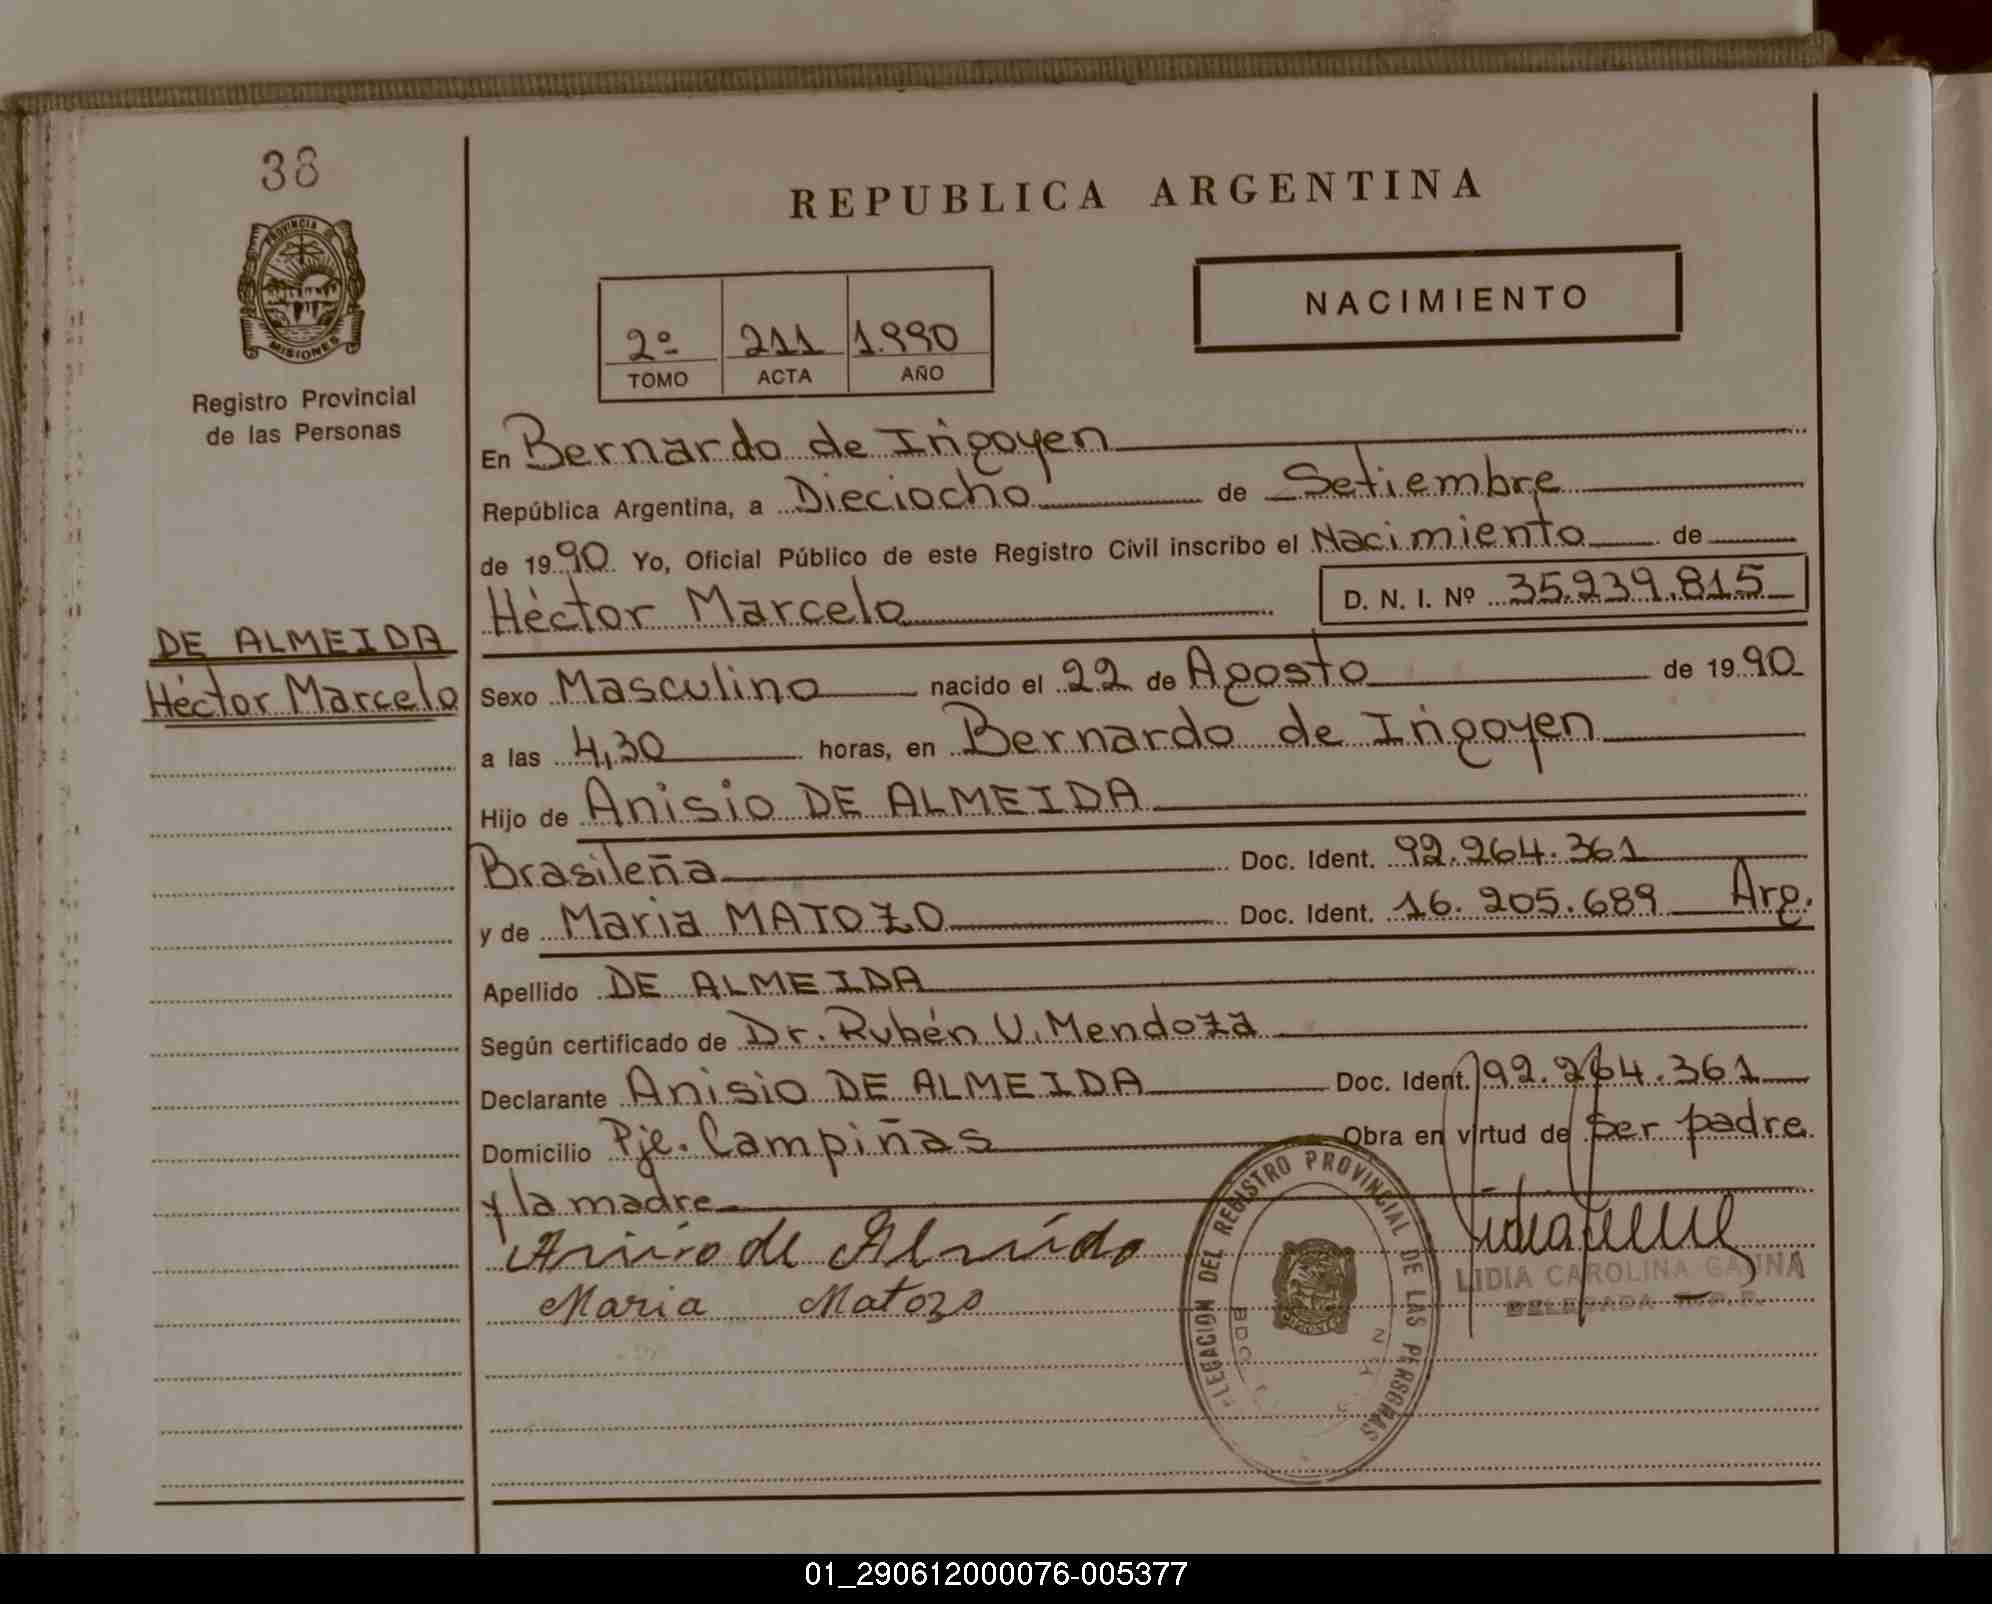 38
PROVINCIA DE
MISIONES
Registro Provincial
de las Personas
DE ALMEIDA
Héctor Marcelo
REPUBLICA ARGENTINA
NACIMIENTO
2º 211 1.990
TOMO ACTA AÑO
En Bernardo de Irigoyen
República Argentina, a Dieciocho de Setiembre
de 1990 Yo, Oficial Público de este Registro Civil inscribo el Nacimiento de
Héctor Marcelo D. N. I. Nº 35.239.815
Sexo Masculino nacido el 22 de Agosto de 1990
a las 4,30 horas, en Bernardo de Irigoyen
Hijo de Anisio DE ALMEIDA
Brasileña Doc. Ident. 92.264.361
y de Maria MATOZO Doc. Ident. 16.205.689 Arg.
Apellido DE ALMEIDA
Según certificado de Dr. Rubén V. Mendoza
Declarante Anisio DE ALMEIDA Doc. Ident. 92.264.361
Domicilio Pje. Campiñas Obra en virtud de ser padre
y la madre
Anisio de Almeida
Maria Matozo
DELEGACION DEL REGISTRO PROVINCIAL DE LAS PERSONAS
LIDIA CAROLINA GAUNA
DELEGADA R.P.P.
01_290612000076-005377